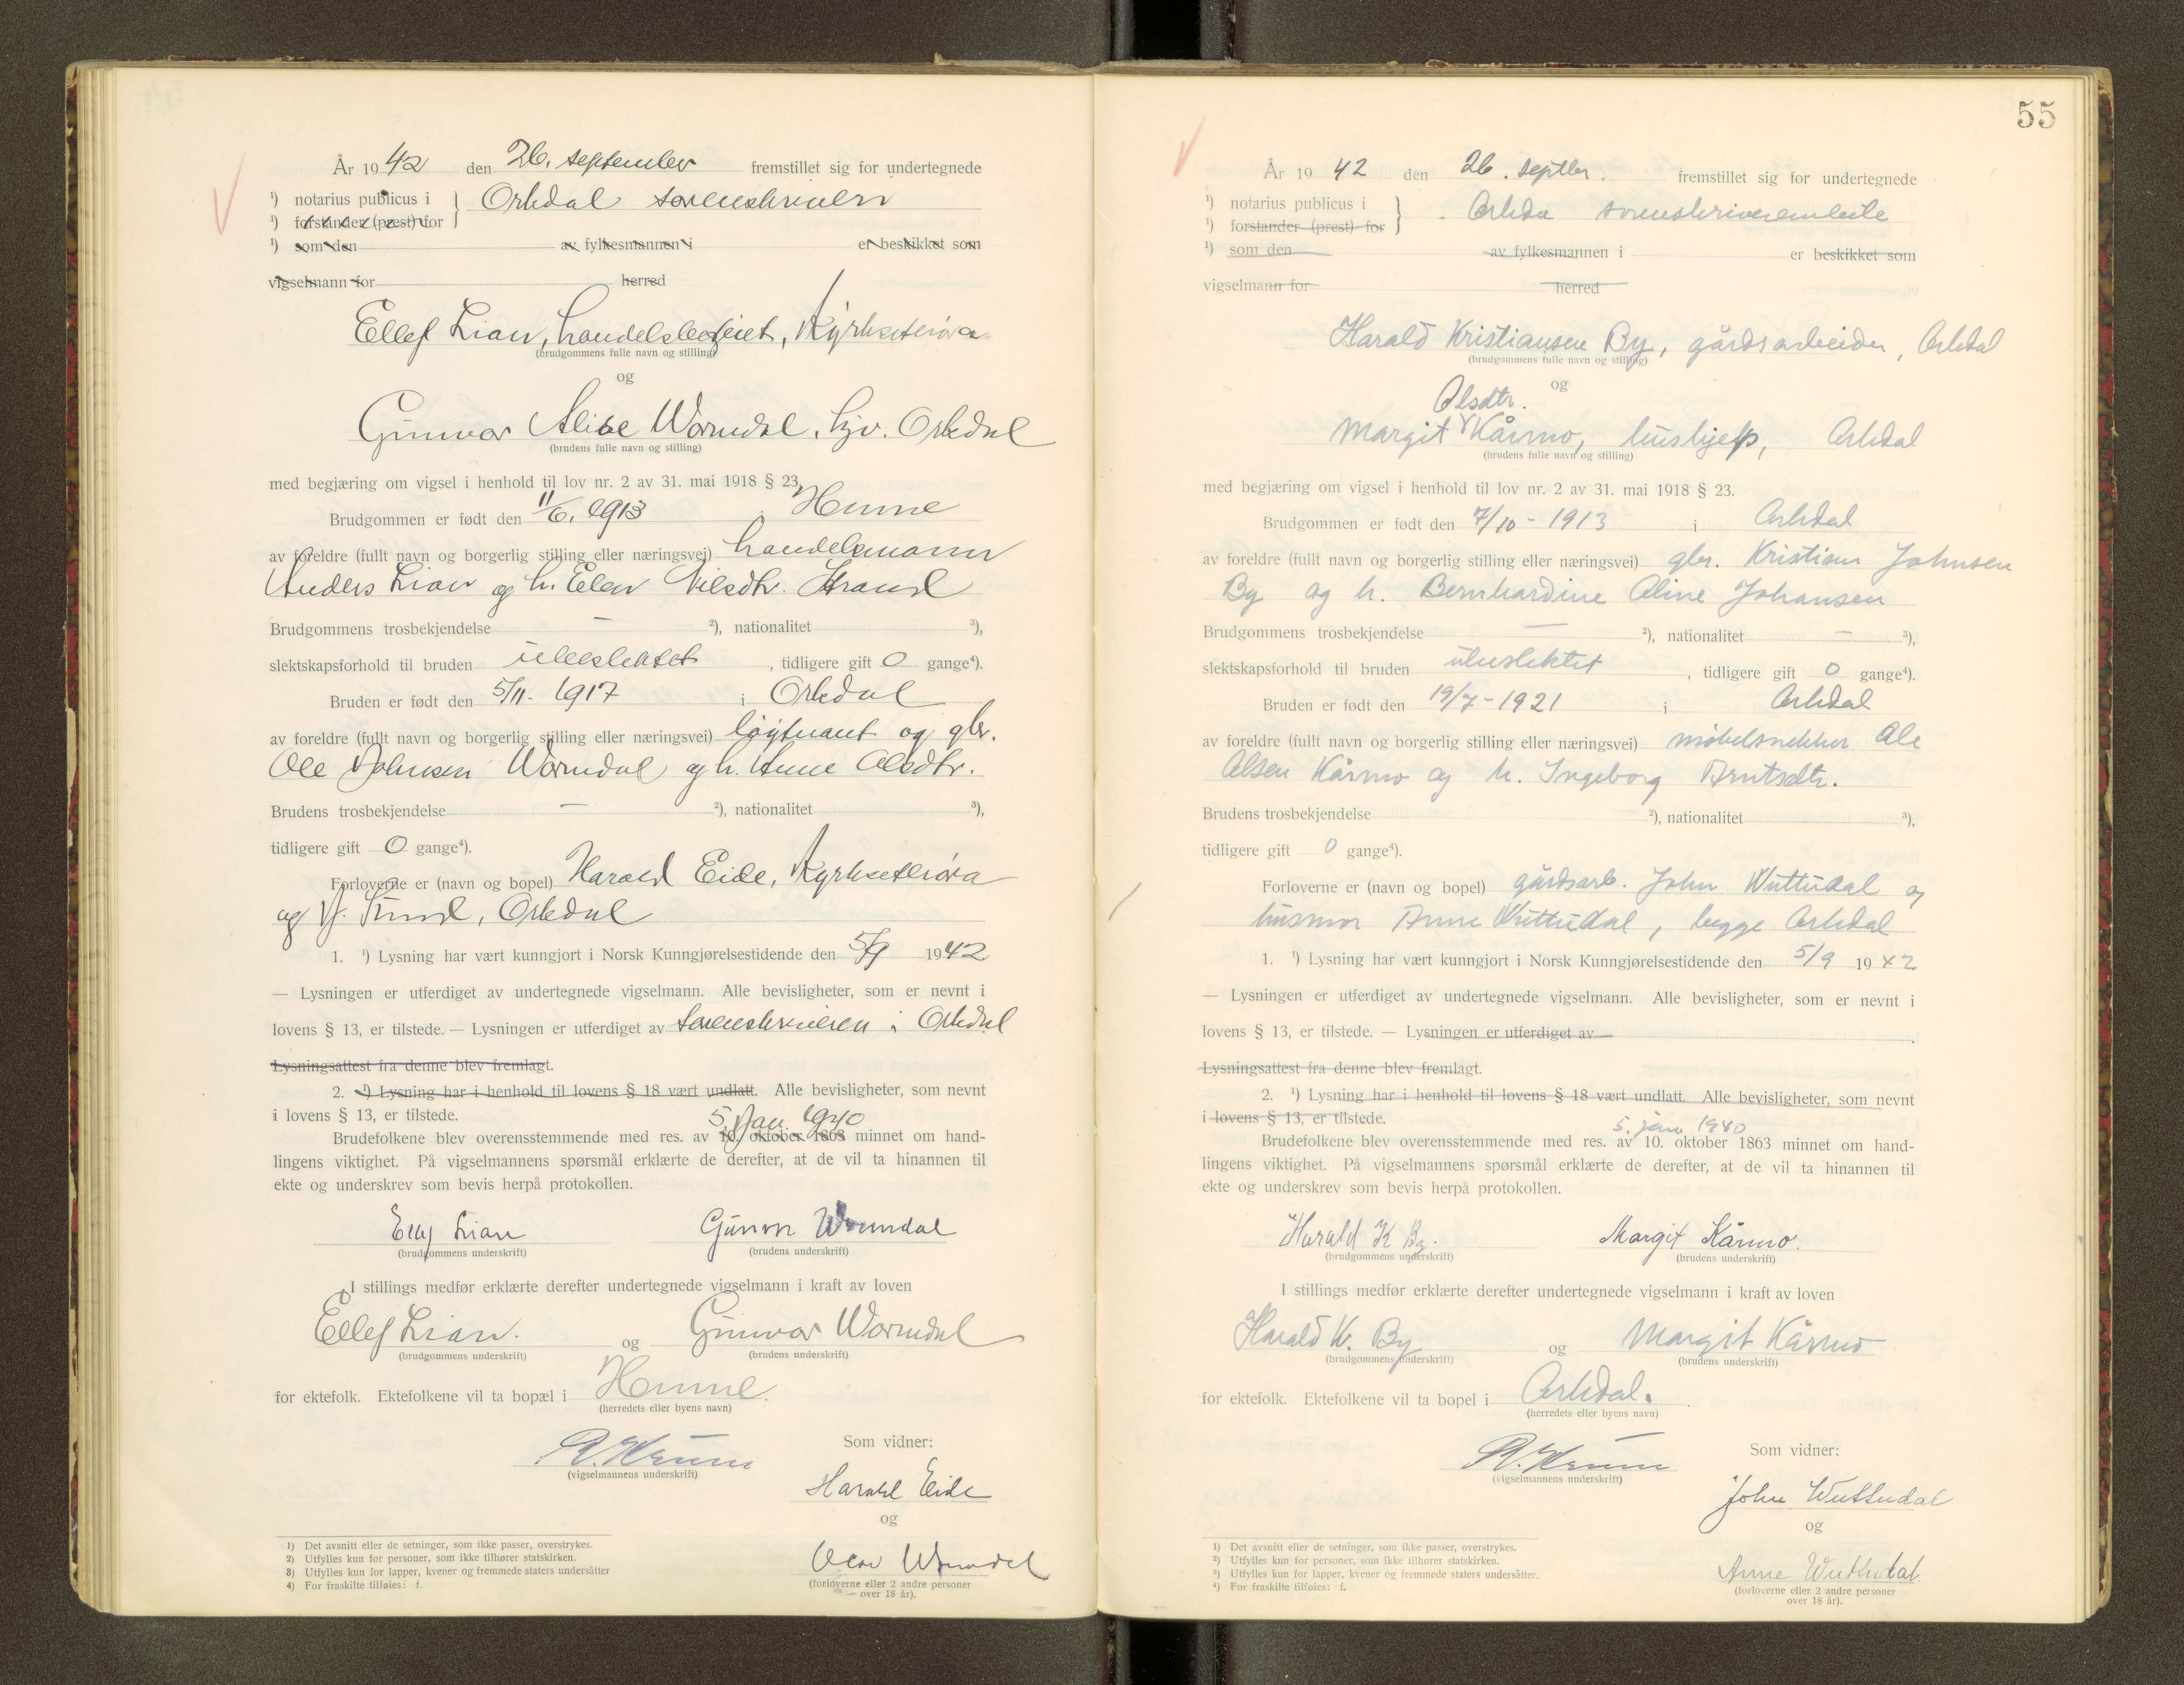 År 1942 den 26. september fremstillet sig for undertegnede
¹) notarius publicus i } Orkdal sorenskriveri
¹) forstander (prest) for
¹) som den av fylkesmannen i er beskikket som
vigselmann for herred
Ellef Lian, handelsbetjent, Kyrksæterøra
(brudgommens fulle navn og stilling)
og
Gunvor Alise Wormdal, hjv. Orkdal
(brudens fulle navn og stilling)
med begjæring om vigsel i henhold til lov nr. 2 av 31. mai 1918 § 23.
Brudgommen er født den 11/6. 1913 i Hemne
av foreldre (fullt navn og borgerlig stilling eller næringsvei) handelsmann
Anders Lian og h. Elen Nilsdtr. Strand
Brudgommens trosbekjendelse — ²), nationalitet ³),
slektskapsforhold til bruden ubeslektet, tidligere gift 0 gange⁴).
Bruden er født den 5/11- 1917 i Orkdal
av foreldre (fullt navn og borgerlig stilling eller næringsvei) løytnant og gbr.
Ole Johnsen Wormdal og h. Anne Olsdtr.
Brudens trosbekjendelse — ²), nationalitet ³),
tidligere gift 0 gange⁴).
Forloverne er (navn og bopel) Harald Eide, Kyrksæterøra
og Orkdal
1. ¹) Lysning har vært kunngjort i Norsk Kunngjørelsestidende den 5/9 1942
— Lysningen er utferdiget av undertegnede vigselmann. Alle bevisligheter, som er nevnt i
lovens § 13, er tilstede. — Lysningen er utferdiget av sorenskriveren i Orkdal
Lysningsattest fra denne blev fremlagt.
2. ¹) Lysning har i henhold til lovens § 18 vært undlatt. Alle bevisligheter, som nevnt
i lovens § 13, er tilstede.
5. Jan. 1940
Brudefolkene blev overensstemmende med res. av 10. oktober 1863 minnet om hand-
lingens viktighet. På vigselmannens spørsmål erklærte de derefter, at de vil ta hinannen til
ekte og underskrev som bevis herpå protokollen.
Ellef Lian Gunvor Wormdal
(brudgommens underskrift) (brudens underskrift)
I stillings medfør erklærte derefter undertegnede vigselmann i kraft av loven
Ellef Lian. og Gunvor Wormdal
(brudgommens underskrift) (brudens underskrift)
for ektefolk. Ektefolkene vil ta bopæl i Hemne.
(herredets eller byens navn)
Som vidner:
(vigselmannens underskrift)
Harald Eide
og
Wormdal
(forloverne eller 2 andre personer
— over 18 år).
1) Det avsnitt eller de setninger, som ikke passer, overstrykes.
2) Utfylles kun for personer, som ikke tilhører statskirken.
3) Utfylles kun for lapper, kvener og fremmede staters undersåtter
4) For fraskilte tilføies: f.
55
År 1942 den 26. septbr. fremstillet sig for undertegnede
¹) notarius publicus i } Orkda sorenskriverembete
¹) forstander (prest) for
¹) som den av fylkesmannen i er beskikket som
vigselmann for herred
Harald Kristiansen By, gårdsarbeider, Orkdal
(brudgommens fulle navn og stilling)
og
Olsdtr.
Margit Kårmo, hushjelp, Orkdal
(brudens fulle navn og stilling)
med begjæring om vigsel i henhold til lov nr. 2 av 31. mai 1918 § 23.
Brudgommen er født den 7/10 - 1913 i Orkdal
av foreldre (fullt navn og borgerlig stilling eller næringsvei) gbr. Kristian Johnsen
By og h. Bernhardine Oline Johansen
Brudgommens trosbekjendelse — ²), nationalitet — ³),
slektskapsforhold til bruden ubeslektet, tidligere gift 0 gange⁴).
Bruden er født den 19/7 - 1921 i Orkdal
av foreldre (fullt navn og borgerlig stilling eller næringsvei) møbelsnekker Ole
Olsen Kårmo og h. Ingeborg Arntsdtr.
Brudens trosbekjendelse ²), nationalitet ³),
tidligere gift 0 gange⁴).
Forloverne er (navn og bopel) gårdsarb. John Wuttudal og
husmor Anne Wuttudal, begge Orkdal
1. ¹) Lysning har vært kunngjort i Norsk Kunngjørelsestidende den 5/9 1942
— Lysningen er utferdiget av undertegnede vigselmann. Alle bevisligheter, som er nevnt i
lovens § 13, er tilstede. — Lysningen er utferdiget av
Lysningsattest fra denne blev fremlagt.
2. ¹) Lysning har i henhold til lovens § 18 vært undlatt. Alle bevisligheter, som nevnt
i lovens § 13, er tilstede.
5. jan 1940
Brudefolkene blev overensstemmende med res. av 10. oktober 1863 minnet om hand-
lingens viktighet. På vigselmannens spørsmål erklærte de derefter, at de vil ta hinannen til
ekte og underskrev som bevis herpå protokollen.
Harald K By. Margit Kårmo.
(brudgommens underskrift) (brudens underskrift)
I stillings medfør erklærte derefter undertegnede vigselmann i kraft av loven
Harald K. By og Margit Kårmo
(brudgommens underskrift) (brudens underskrift)
for ektefolk. Ektefolkene vil ta bopel i Orkdal.
(herredets eller byens navn)
Som vidner:
(vigselmannens underskrift)
John Wuttudal
og
Anne Wuttudal.
(forloverne eller 2 andre personer
over 18 år).
¹) Det avsnitt eller de setninger, som ikke passer, overstrykes.
²) Utfylles kun for personer, som ikke tilhører statskirken.
³) Utfylles kun for lapper, kvener og fremmede staters undersåtter.
⁴) For fraskilte tilføies: f.